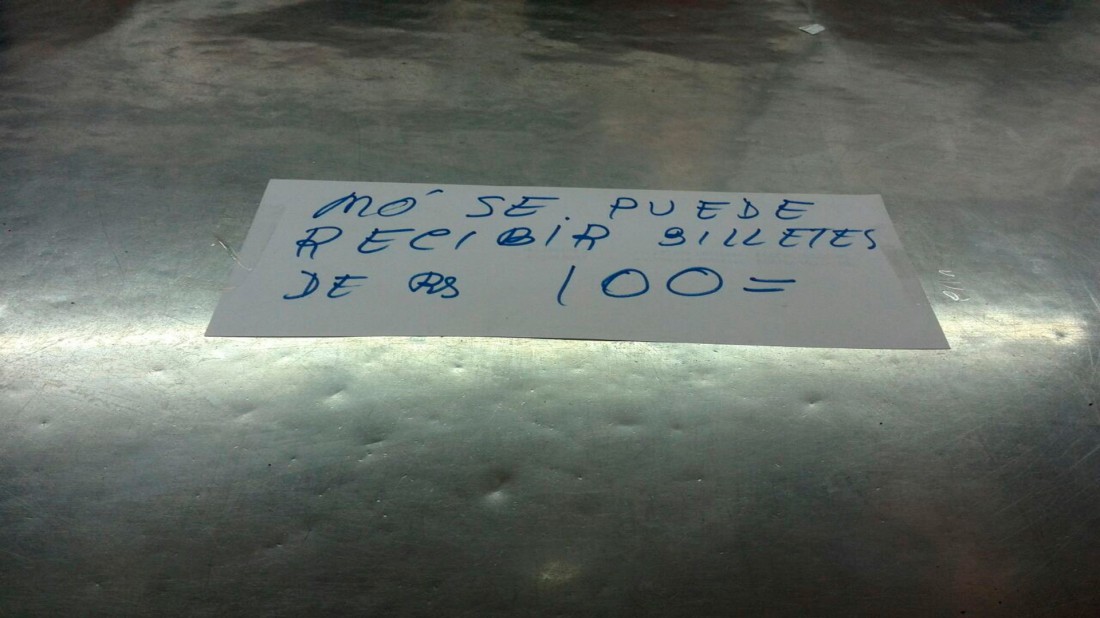 NÓ SE PUEDE
RECIBIR BILLETES
DE Bs 100=